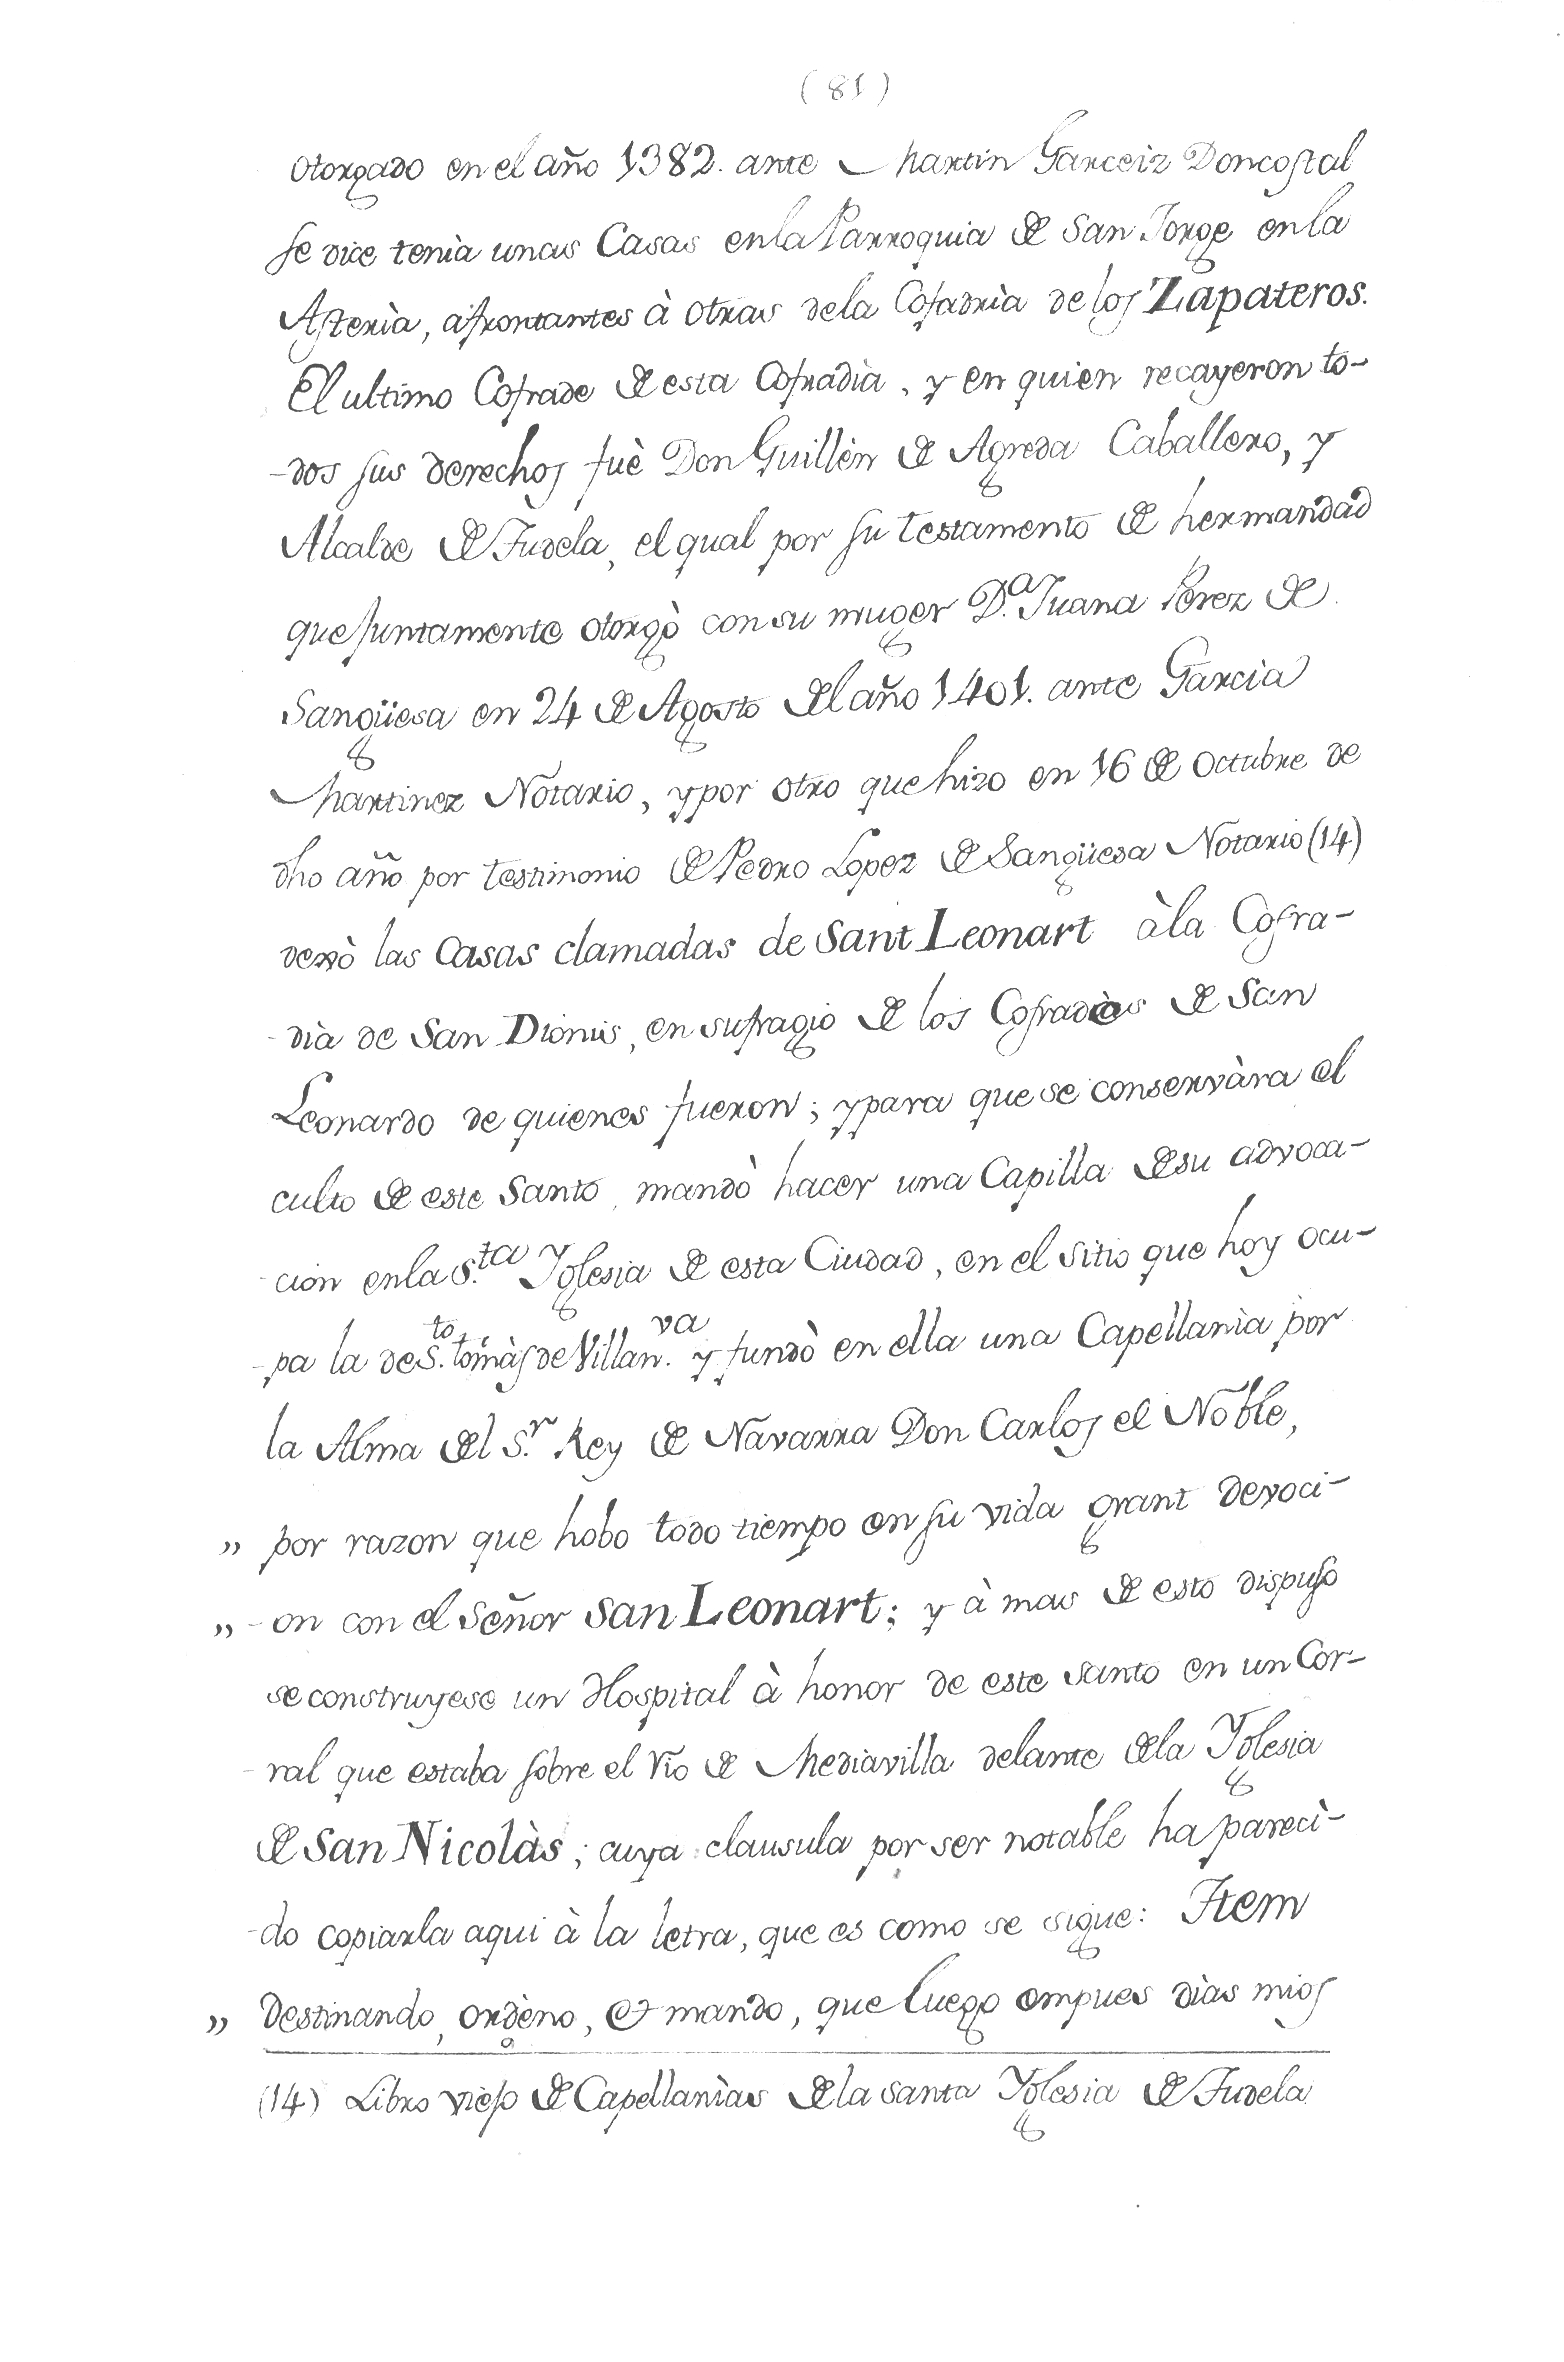 (81)
otorgado en el año 1382. ante Martin Garceiz Doncostal
se dice tenìa unas Casas en la Parroquia de San Jorge en la
Asterìa, afrontantes à otras de la Cofadrìa de los Zapateros.
El ultimo Cofrade de esta Cofradìa, y en quien recayeron to-
-dos sus derechos fuè Don Guillèn de Agreda Caballero, y
Alcalde de Tudela, el qual por su testamento de hermandad
que juntamente otorgò con su muger D.ª Juana Perez de
Sangüesa en 24 de Agosto del año 1401. ante Garcia
Martinez Notario, y por otro que hizo en 16 de Octubre de
dho año por testimonio de Pedro Lopez de Sangüesa Notario (14)
dexò las Casas clamadas de Sant Leonart à la Cofra-
-dìa de San Dionis, en sufragio de los Cofrades de San
Leonardo de quienes fueron; y para que se conservàra el
culto de este Santo, mandò hacer una Capilla de su advoca-
-cion en la S.ta Yglesia de esta Ciudad, en el sitio que hoy ocu-
-pa la de S.to tomàs de Villan.va y fundò en ella una Capellanìa por
la Alma del S.r Rey de Navarra Don Carlos el Noble,
" por razon que hobo todo tiempo en su vida grant devoci-
" -on con el Señor San Leonart; y à mas de esto dispuso
se construyese un Hospital à honor de este Santo en un Cor-
-ral que estaba sobre el rio de Mediavilla delante de la Yglesia
de San Nicolàs; cuya clausula por ser notable ha pareci-
-do copiarla aqui à la letra, que es como se sigue: Item
" Destinando, ordèno, et mando, que luego empues dìas mios
(14) Libro viejo de Capellanìas de la Santa Yglesia de Tudela